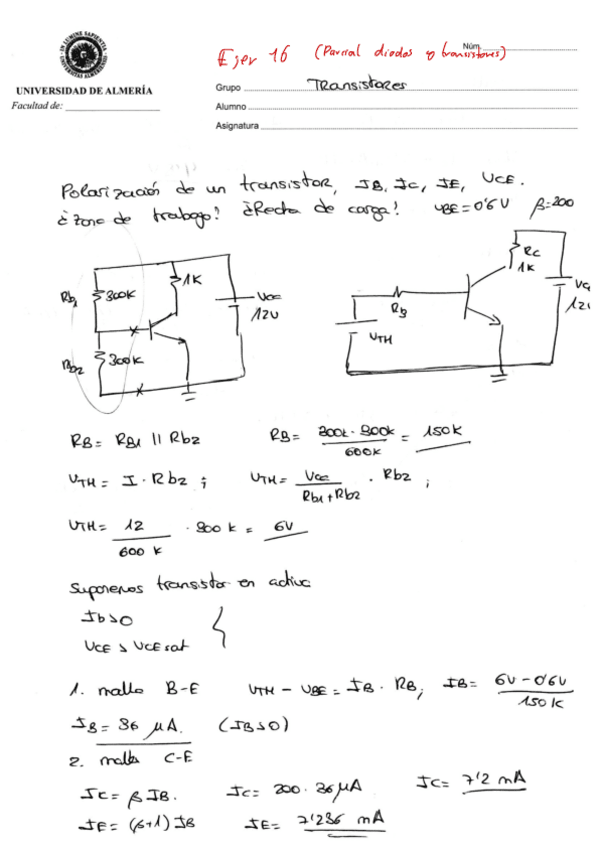 IN LUMINE SAPIENTIA
UNIVERSITAS ALMERIENSIS
Ejer 16 (Parcial diodos y transistores)
Núm.
UNIVERSIDAD DE ALMERÍA
Grupo Transistores
Facultad de:
Alumno
Asignatura
Polarización de un transistor, IB, IC, IE, VCE.
¿Zona de trabajo? ¿Recta de carga? VBE=0'6V β=200
Rb1 300K 1K Vcc 12V
Rb2 300K
RC 1K Vcc 12V
RB
VTH
RB= RB1 || Rb2 RB= 300k · 300k / 600k = 150K
VTH= I · Rb2 ; VTH= Vcc / Rb1+Rb2 · Rb2 ;
VTH= 12 / 600 K · 300 k = 6V
Suponemos transistor en activa
Ib>0
VCE > VCE sat
1. malla B-E VTH - VBE = IB · RB; IB= 6V - 0'6V / 150K
IB= 36 μA. (IB>0)
2. malla C-E
IC= β IB. IC= 200 · 36 μA IC= 7'2 mA
IE= (β+1) IB IE= 7'236 mA